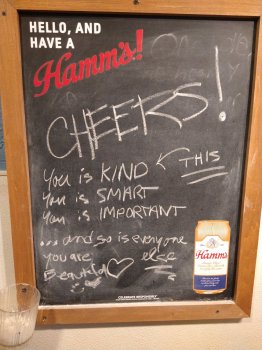 HELLO, AND
HAVE A
Hamm's!
CHEERS!
You is KIND
THIS
You is SMART
You is IMPORTANT
... and so is everyone
else
you are
Beautiful
Hamm's
CELEBRATE RESPONSIBLY